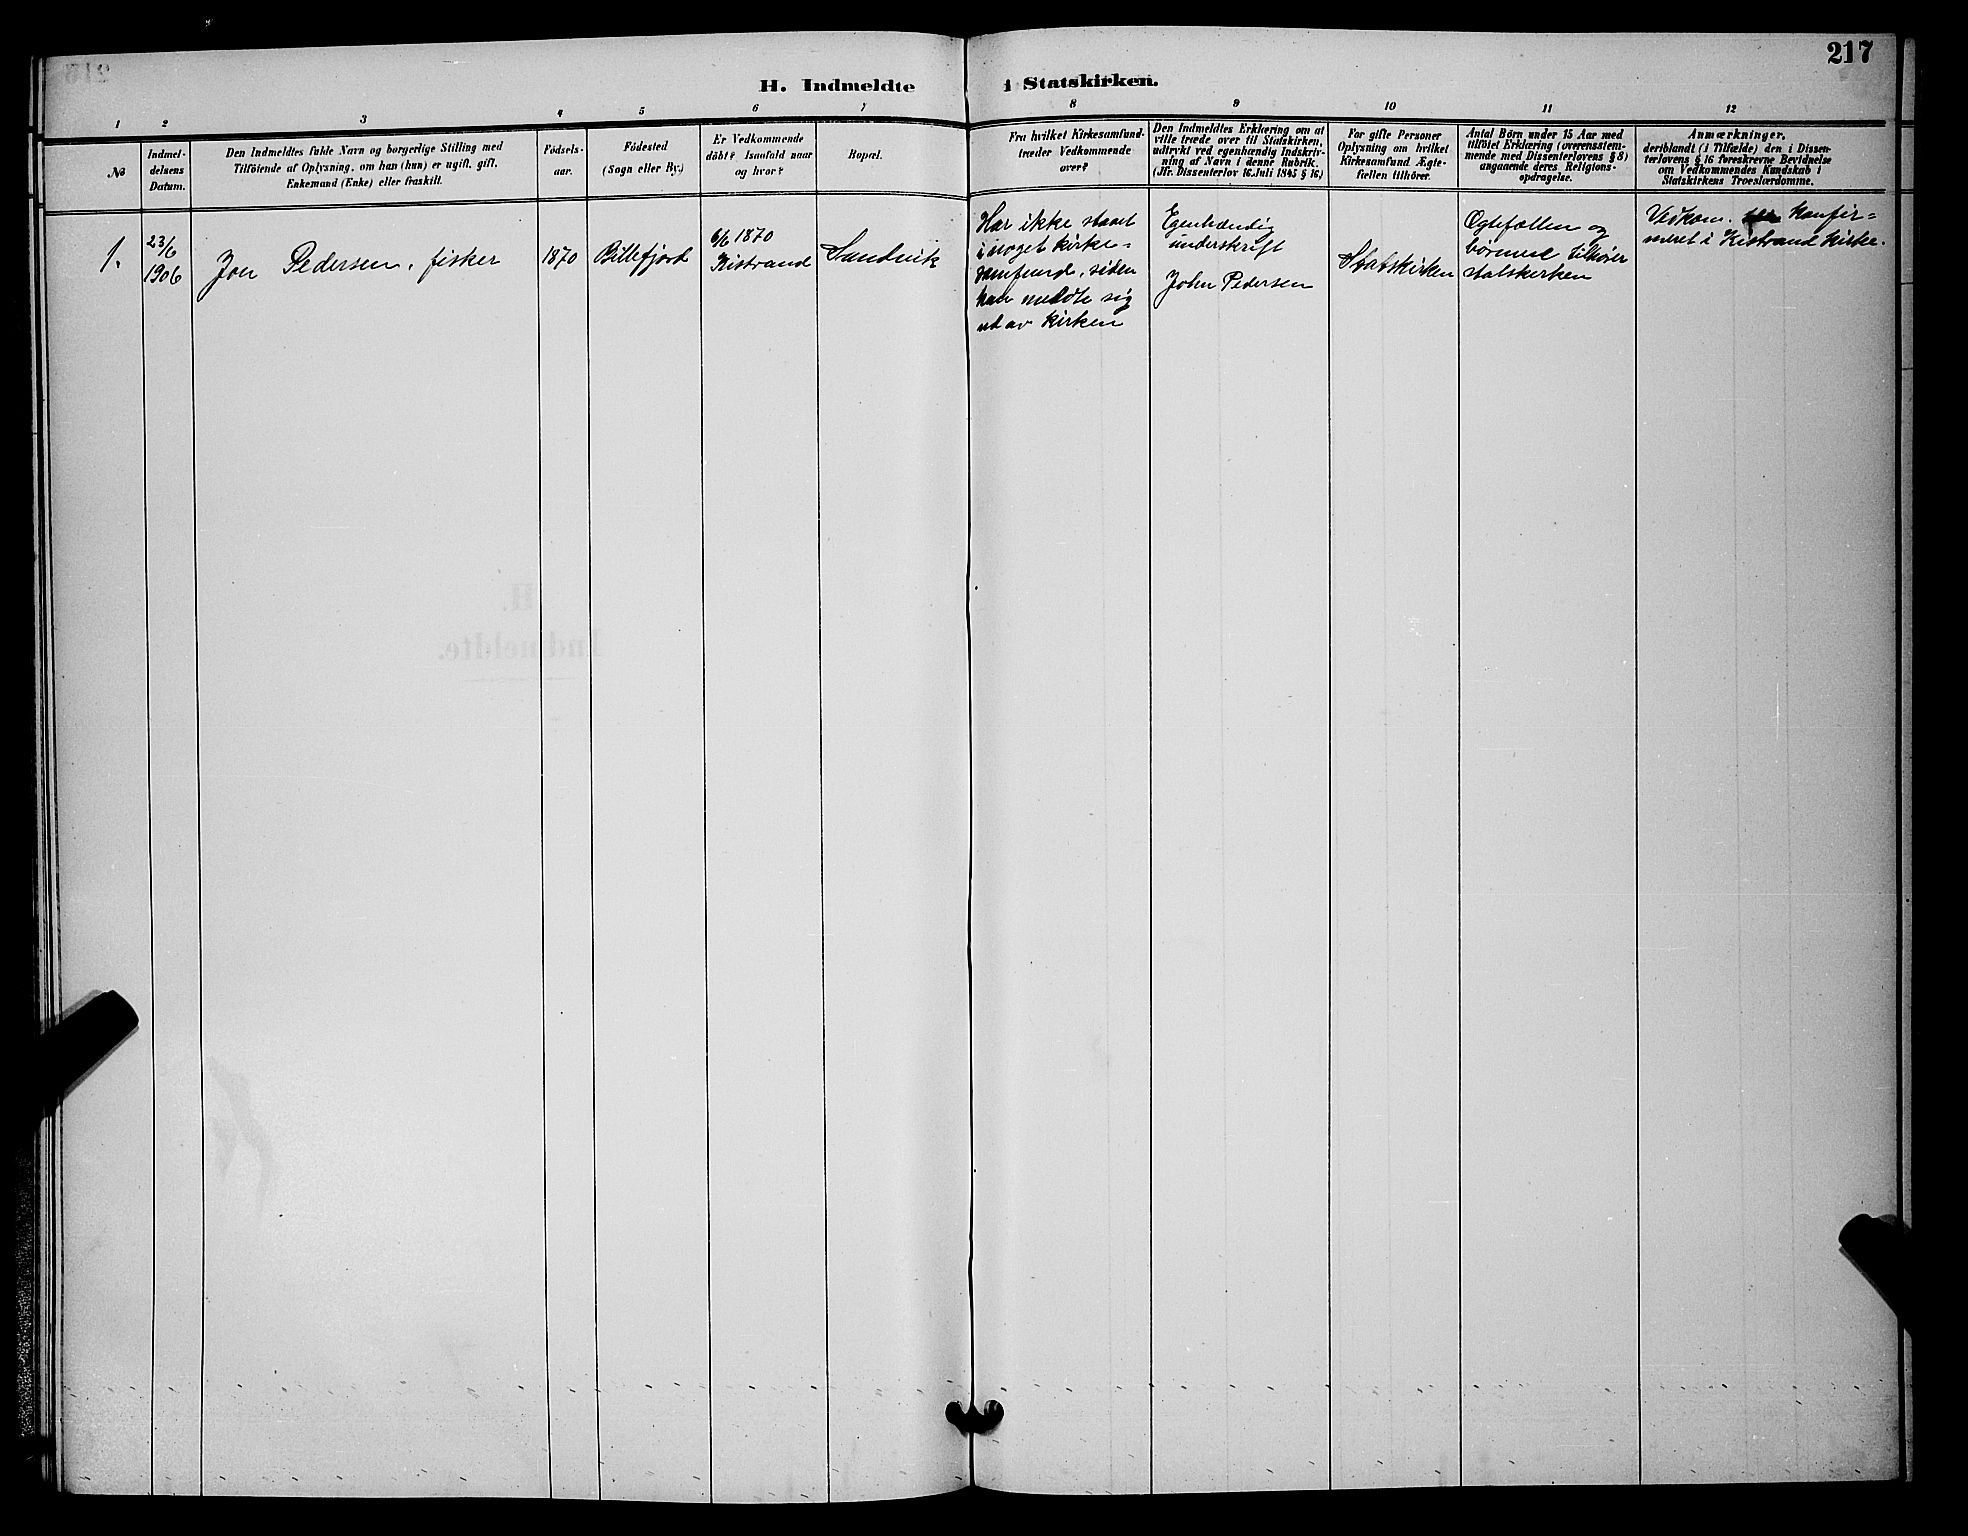 217
H. Indmeldte i Statskirken.
1 2 3 4 5 6 7 8 9 10 11 12
No
Indmel-
delsens
Datum.
Den Indmeldtes fulde Navn og borgerlige Stilling med
Tilföiende af Oplysning, om han (hun) er ugift, gift,
Enkemand (Enke) eller fraskilt.
Födsels-
aar.
Födested
(Sogn eller By.)
Er Vedkommende
döbt? Isaafald naar
og hvor?
Bopæl.
Fra hvilket Kirkesamfund
træder Vedkommende
over?
Den Indmeldtes Erklæring om at
ville træde over til Statskirken,
udtrykt ved egenhændig Indskriv-
ning af Navn i denne Rubrik.
(Jfr. Dissenterlov 16. Juli 1845 § 16.)
For gifte Personer
Oplysning om hvilket
Kirkesamfund Ægte-
fællen tilhörer.
Antal Börn under 15 Aar med
tilföiet Erklæring (overensstem-
mende med Dissenterlovens § 8)
angaaende deres Religions-
opdragelse.
Anmærkninger,
deriblandt (i Tilfælde) den i Dissen-
terlovens § 16 foreskrevne Bevidnelse
om Vedkommendes Kundskab i
Statskirkens Troeslærdomme.
1.
23/6
1906
Joer Pedersen, fisker
1870
Billefjord
6/6 1870
Kistrand
Sandvik
Har ikke staaet
i noget kirke-
samfund, siden
han meldte sig
ud av kirken
Egenhændig
underskrift
John Pedersen
Statskirken
Ægtefællen og
børnene tilhører
statskirken
Vedkom. konfir-
meret i Kistrand kirke.